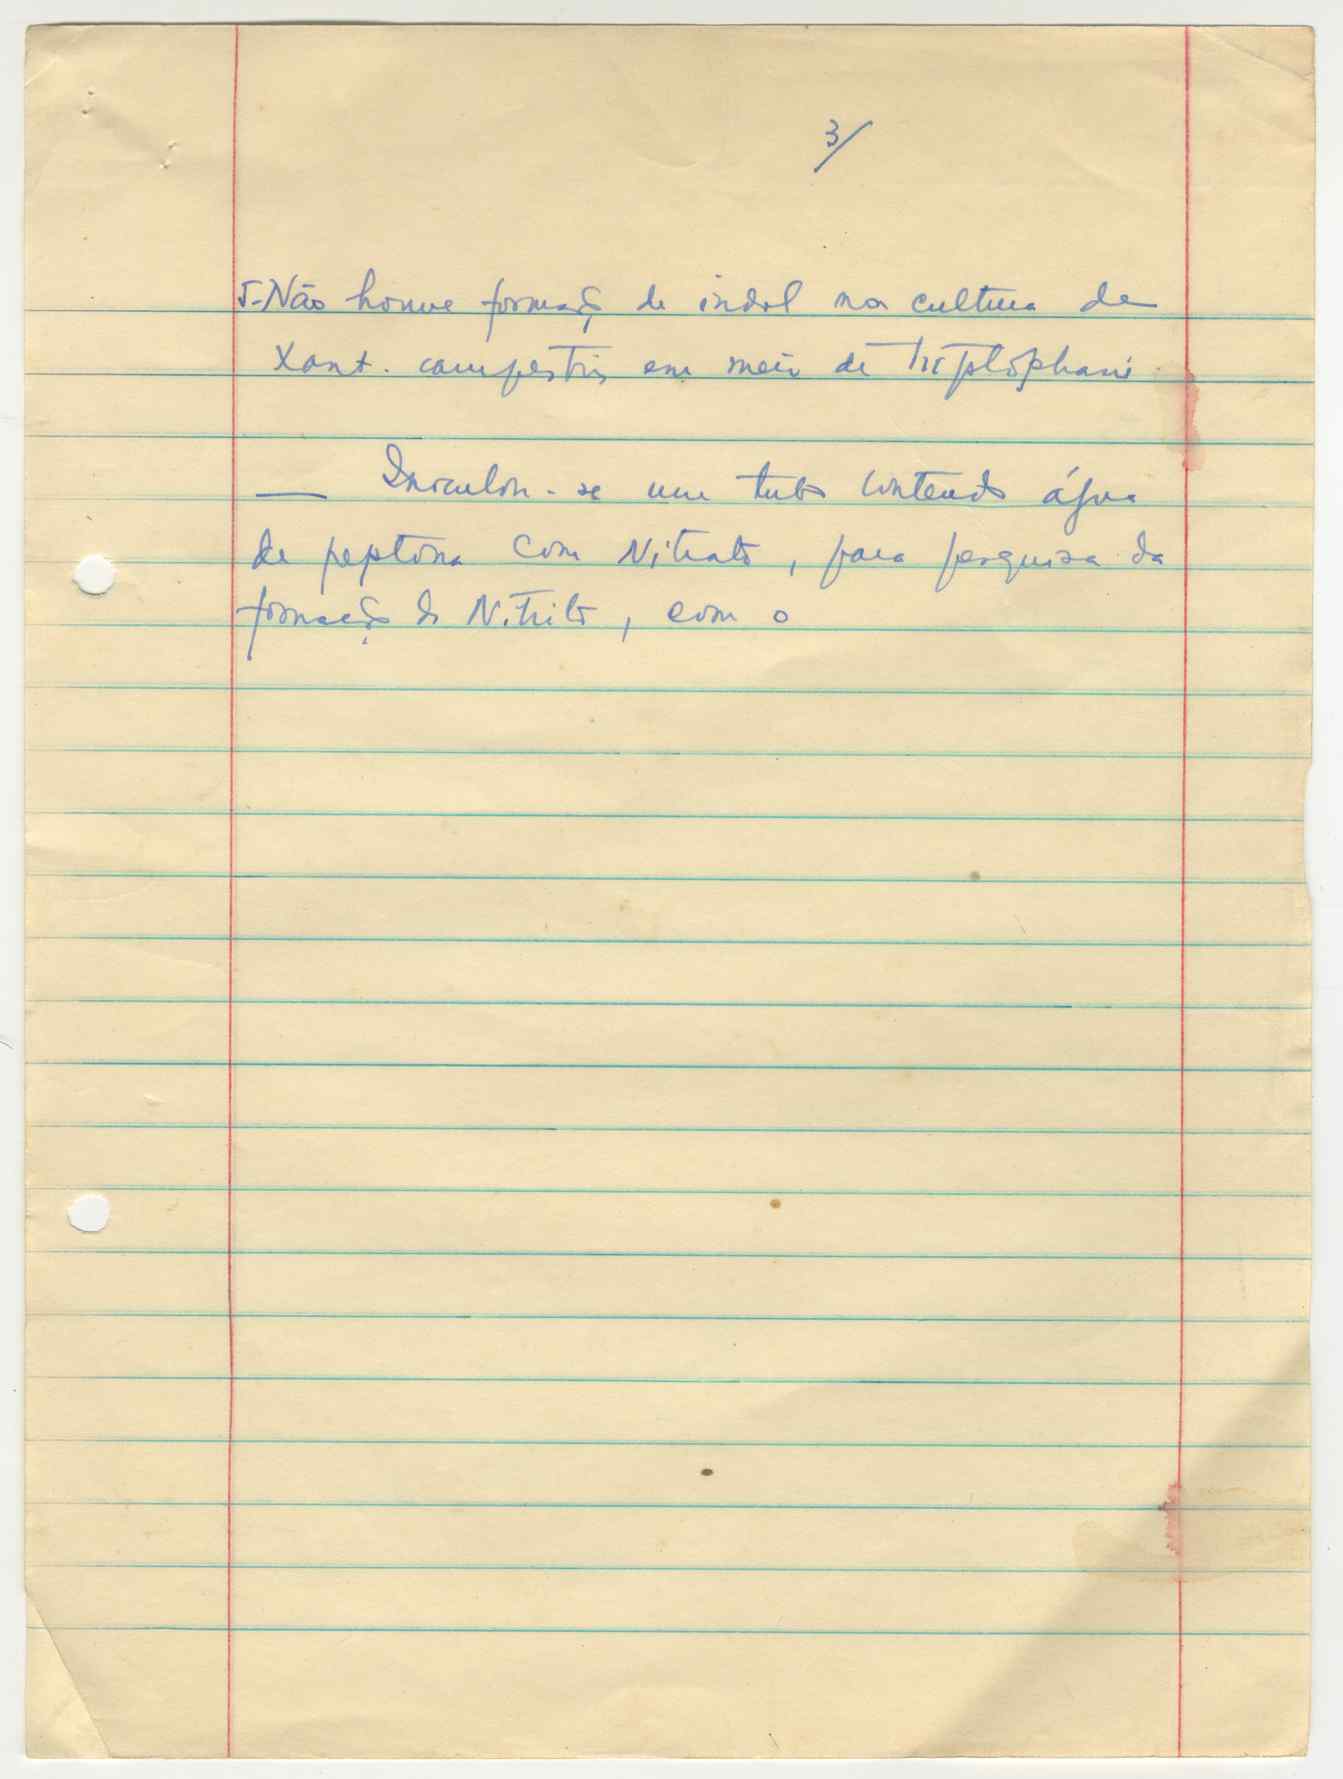 3/
5-Não houve formação de indol na cultura de
Xant. campestris em meio de
— Inoculou-se um tubo contendo água
de peptona com Nitrato, para pesquisa da
formação de Nitrito, com o